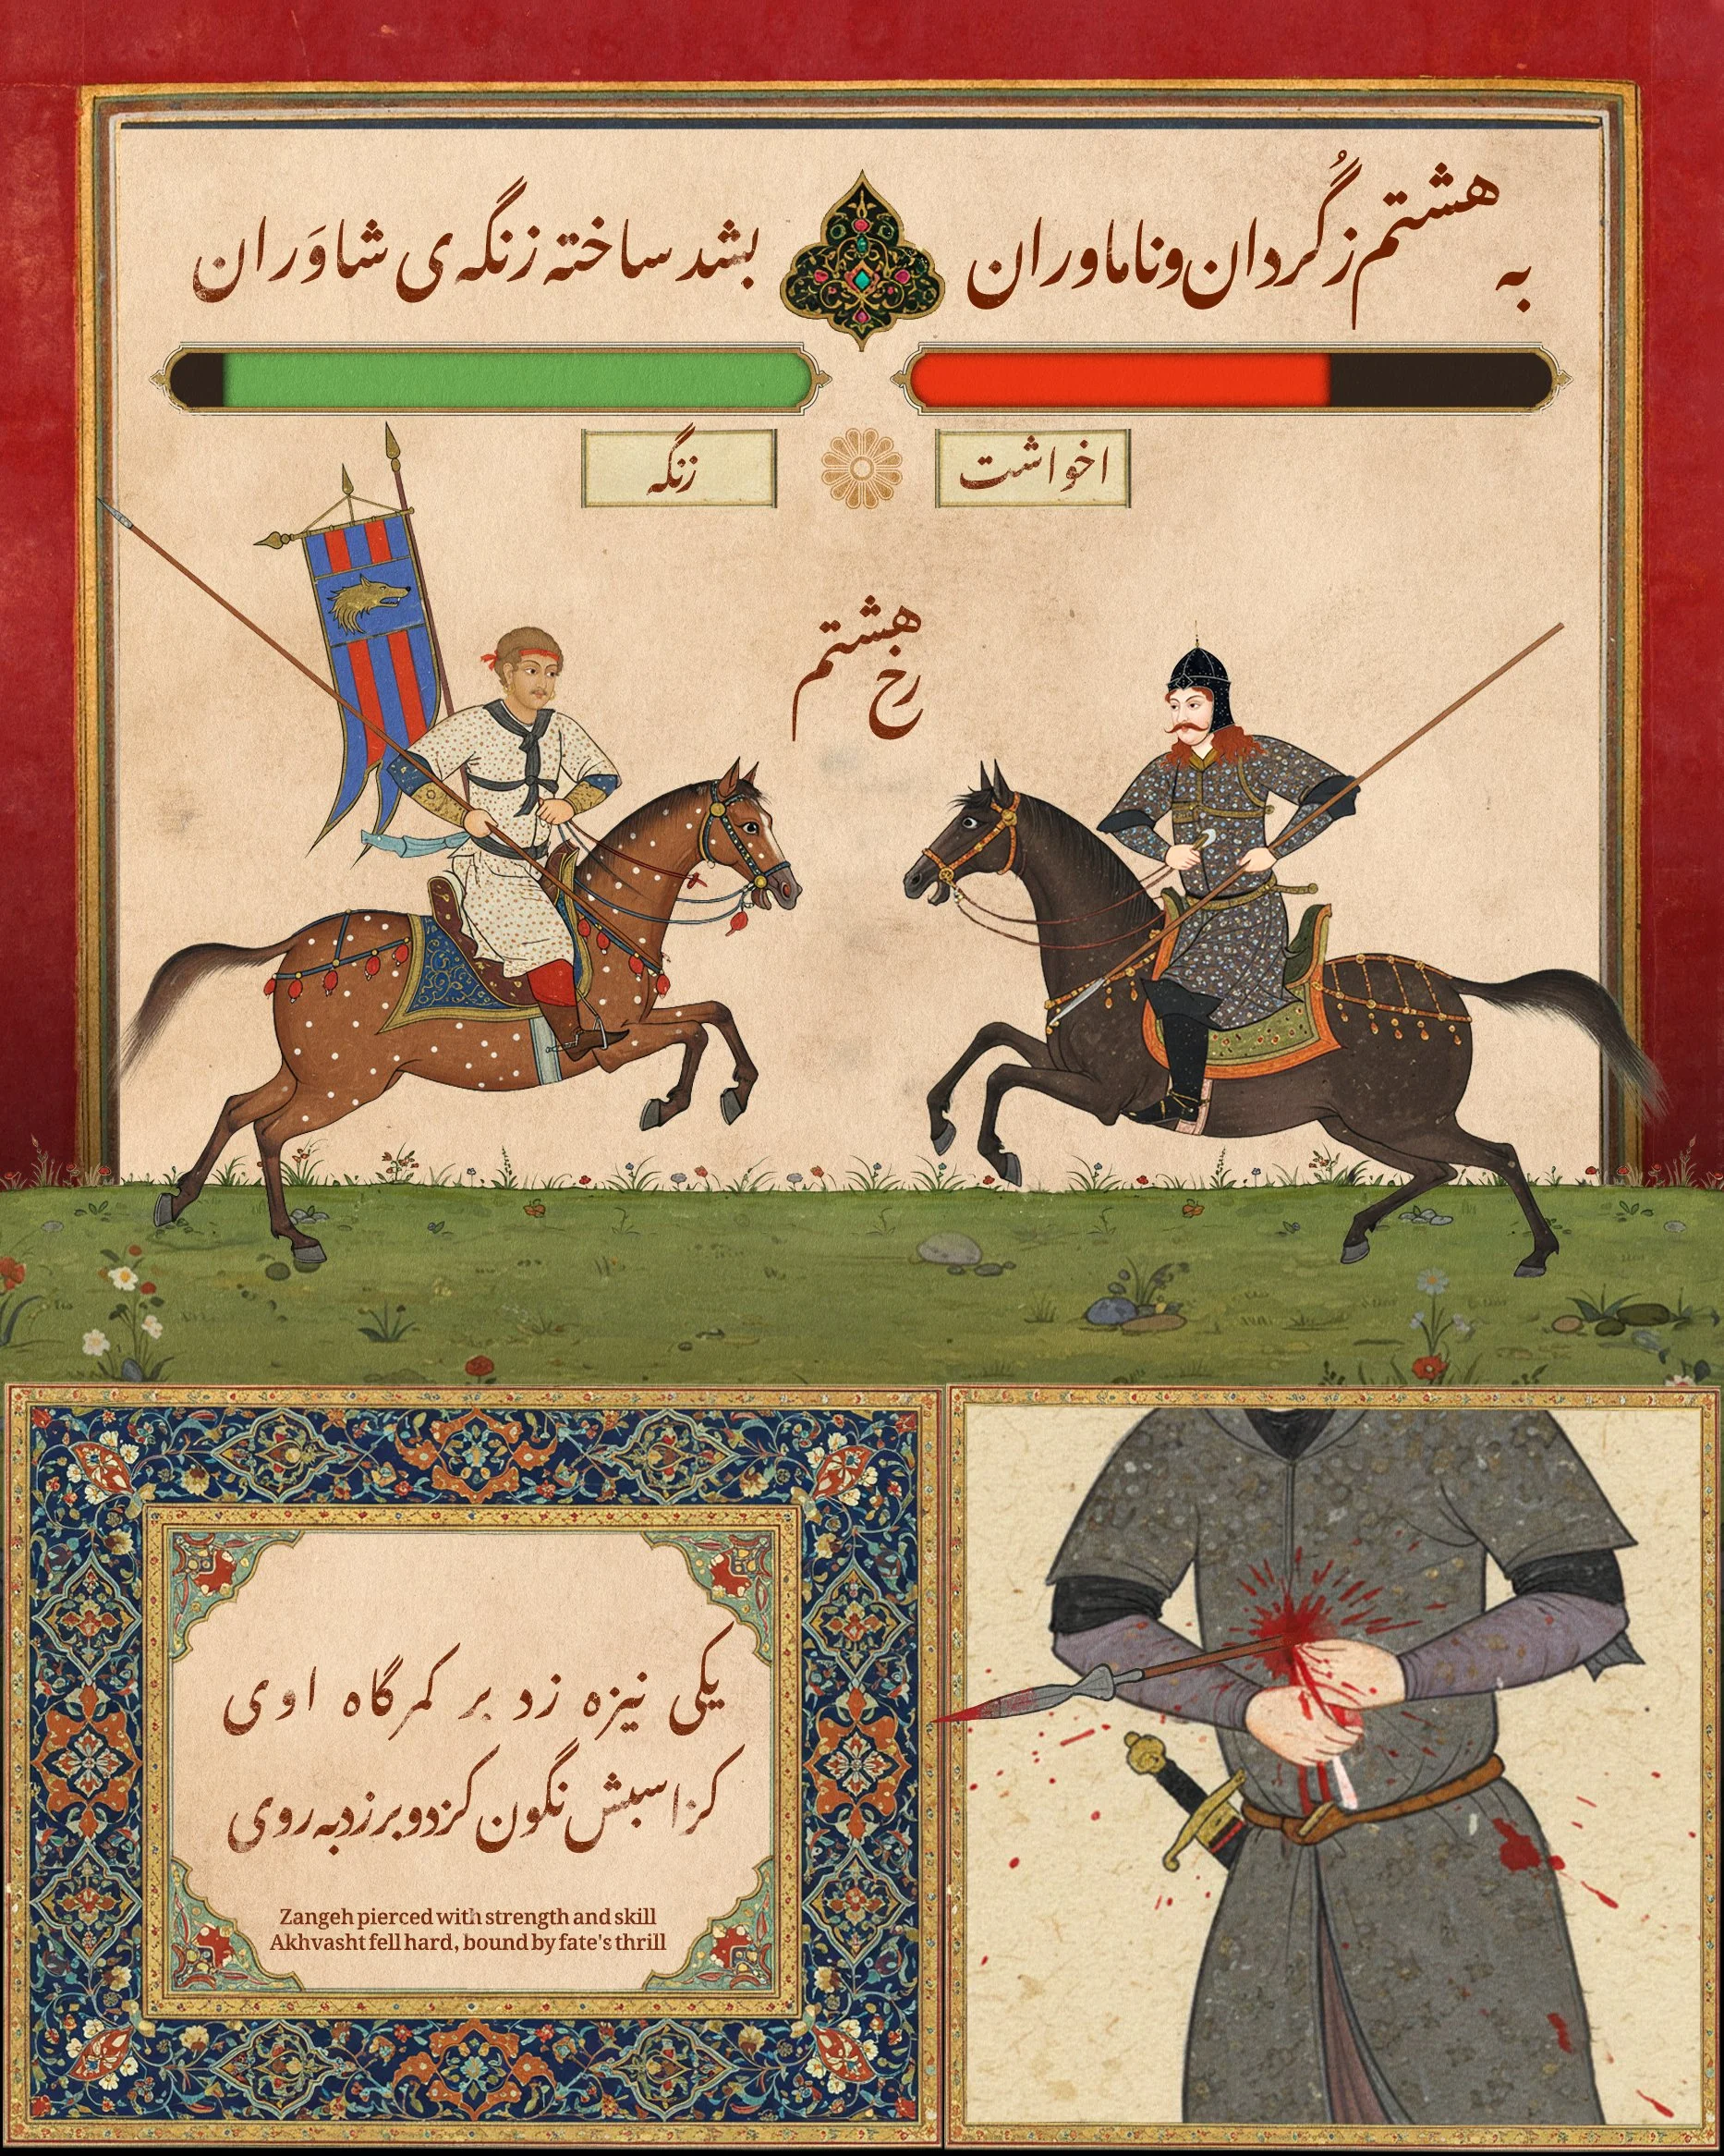 به هشتم ز گُردان و ناماوران
بشد ساخته زنگه‌ی شاوَران
زنگه
اخواشت
هشتم رخ
یکی نیزه زد بر کمرگاه اوی
کز اسبش نگون کرد و برزد به روی
Zangeh pierced with strength and skill
Akhvasht fell hard, bound by fate's thrill